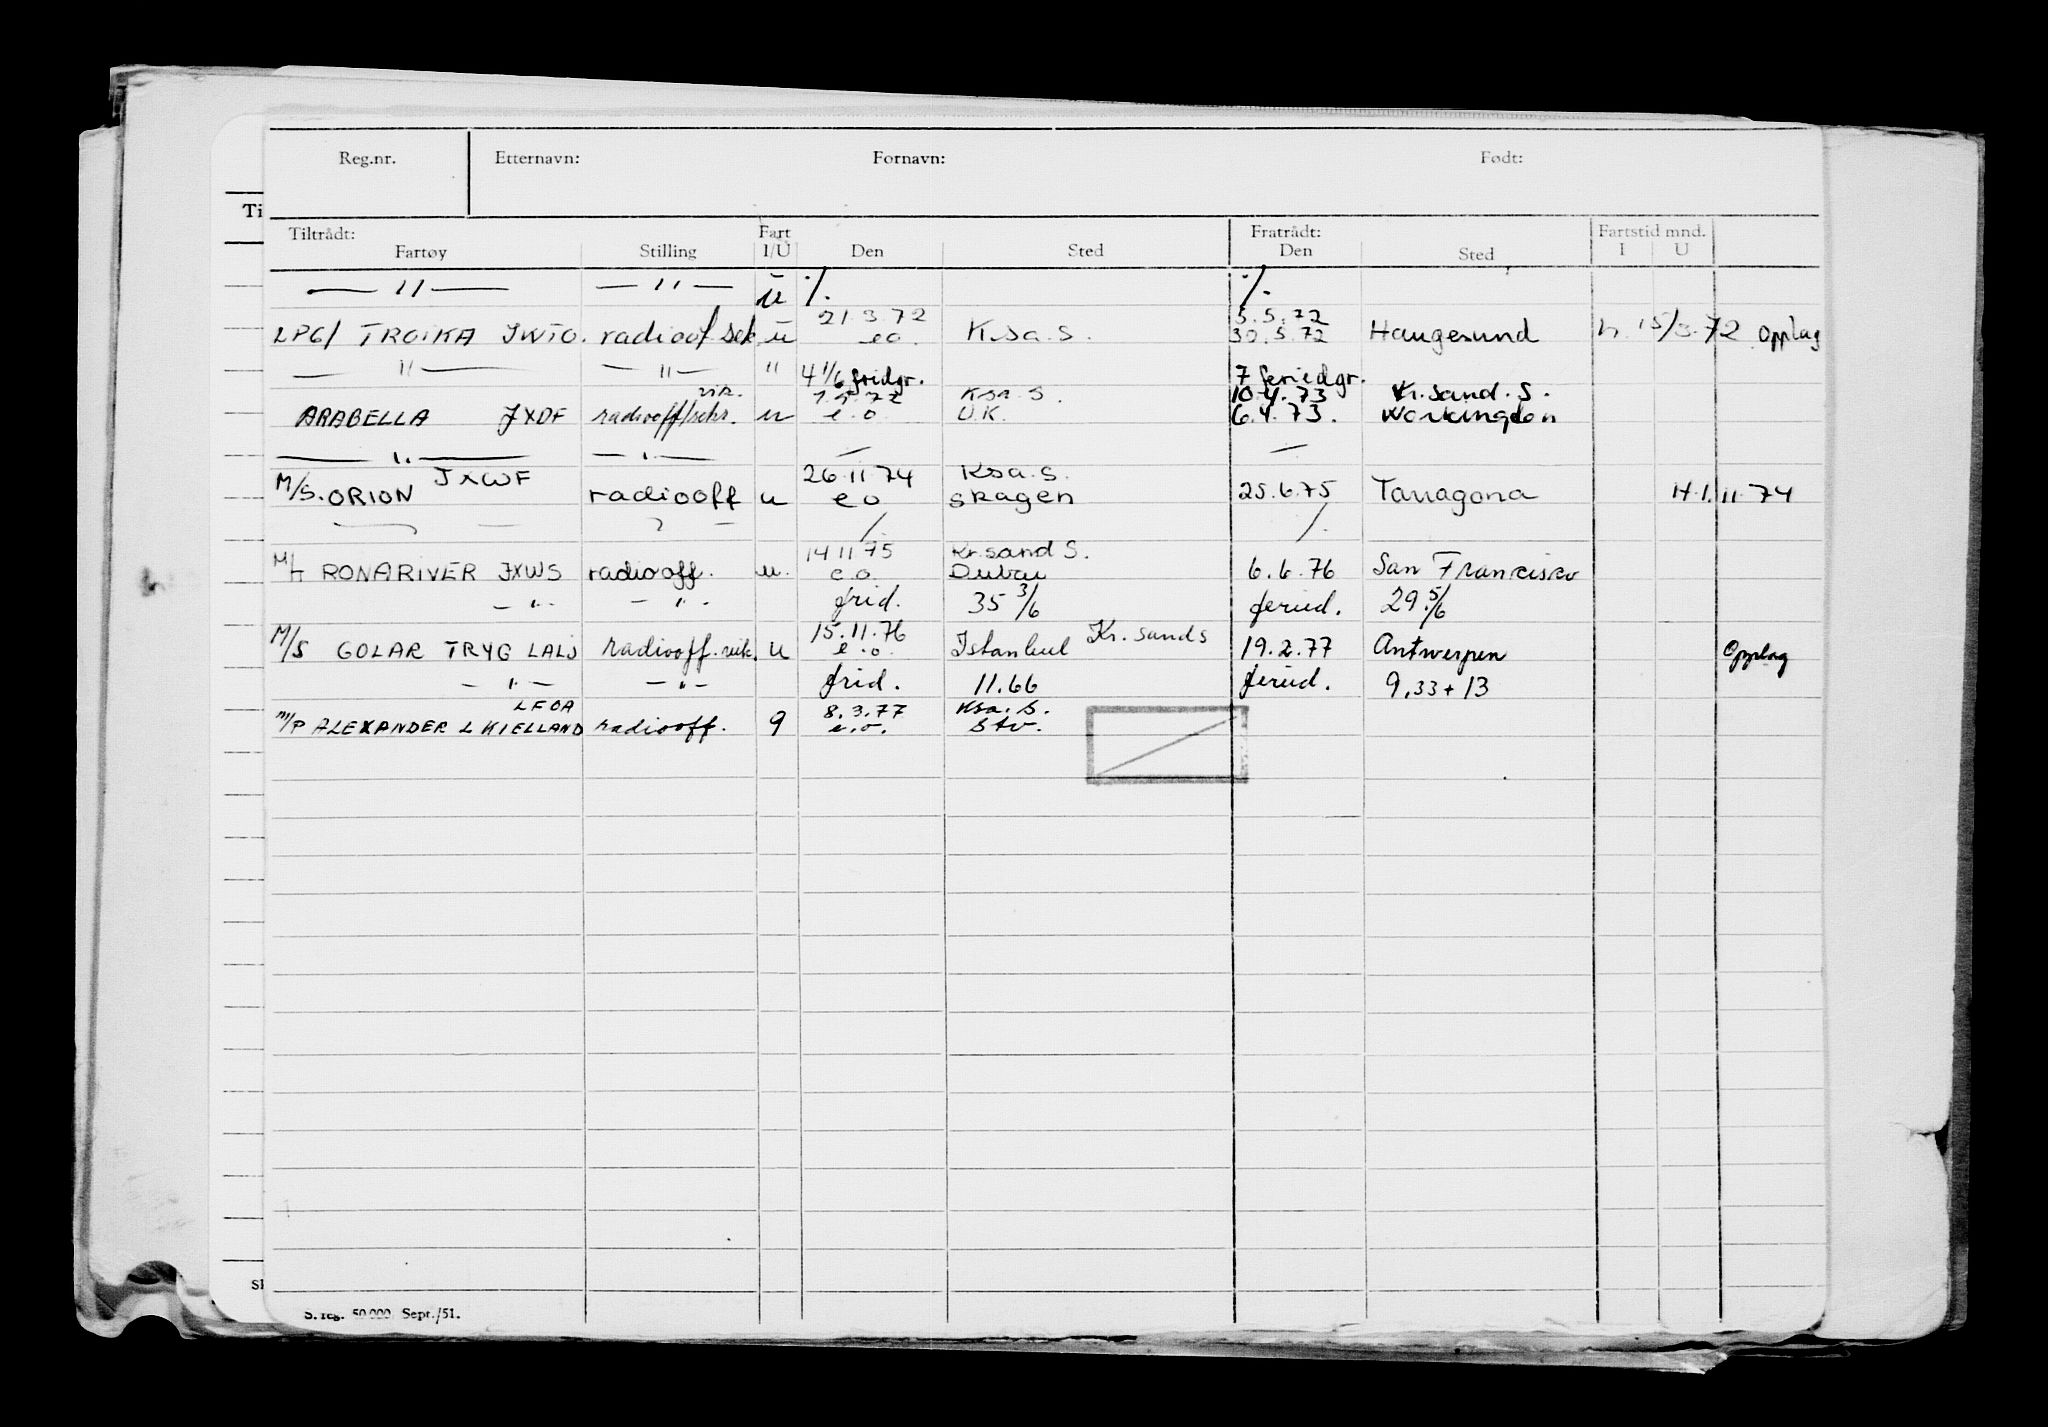 Reg.nr. Etternavn: Fornavn: Født:
Ti
Tiltrådt: Fart Fratrådt: Fartstid mnd.
Fartøy Stilling I/U Den Sted Den Sted I U
— " — — " — u ./. ./.
21.3.72 5.5.72
LPG/ TROIKA JWTO. radiooff sek u eo. K.sa.S. 30.5.72 Haugesund h. 15/3.72 Opplag
— " — — " — " 4 1/6 fridgr. 7 feriedgr.
vik. K.sa.S. 10.4.73 Kr.sand.S.
ARABELLA JXDF radiooff/sekr. u e.o. U.K. 6.4.73. Workington
— " — — " — — —
JXWF 26.11.74 Ksa.S.
M/S. ORION radiooff u eo Skagen 25.6.75 Tarragona H.1.11.74
./. ./.
14 11 75 Kr.sand S.
M/T RONARIVER JXWS radiooff. u. e.o. Dubai 6.6.76 San Francisko
— " — — " — frid. 35 3/6 feried. 29.5/6
15.11.76 Kr. sand S
M/S GOLAR TRYG LALJ radiooff. vik. u e.o. Istanbul 19.2.77 Antwerpen Opplag
— " — — " — frid. 11.66 feried. 9,33 + 13
LFOA 8.3.77 Ksa.S.
M/P ALEXANDER L KIELLAND radiooff. 9 e.o. Stv.
S. reg. 50 000. Sept./51.